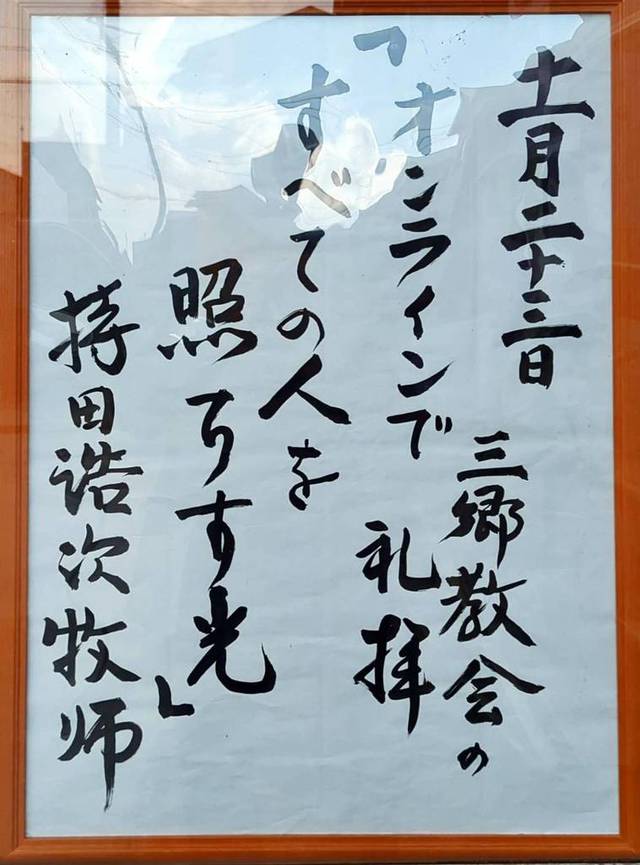 十一月二十三日
三郷教会の
オンラインで 礼拝
「すべての人を
照らす光」
持田浩次牧師